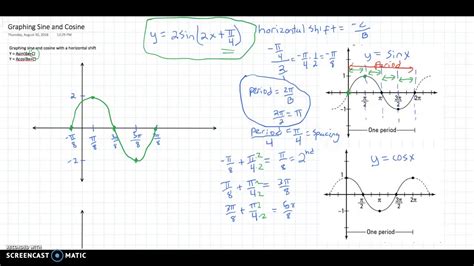 Graphing Sine and Cosine
Thursday, August 30, 2018
Graphing sine and cosine with a horizontal shift
y = 2sin(2x + π/4)
horizontal shift = -C/B
-π/4 / 2 = -π/4 · 1/2 = -π/8
period = 2π/B
2π/2 = π
period/4 = π/4 = spacing
-π/8 + π·2/4·2 = π/8 = 2nd
π/8 + π·2/4·2 = 3π/8
3π/8 + π·2/4·2 = 5π/8
2
-2
-π/8 π/8 3π/8 5π/8 7π/8
y = sinx
period
1
-1
π/2 π 3π/2 2π
One period
y = cosx
1
-1
π/2 π 3π/2 2π
One period
RECORDED WITH
SCREENCAST MATIC